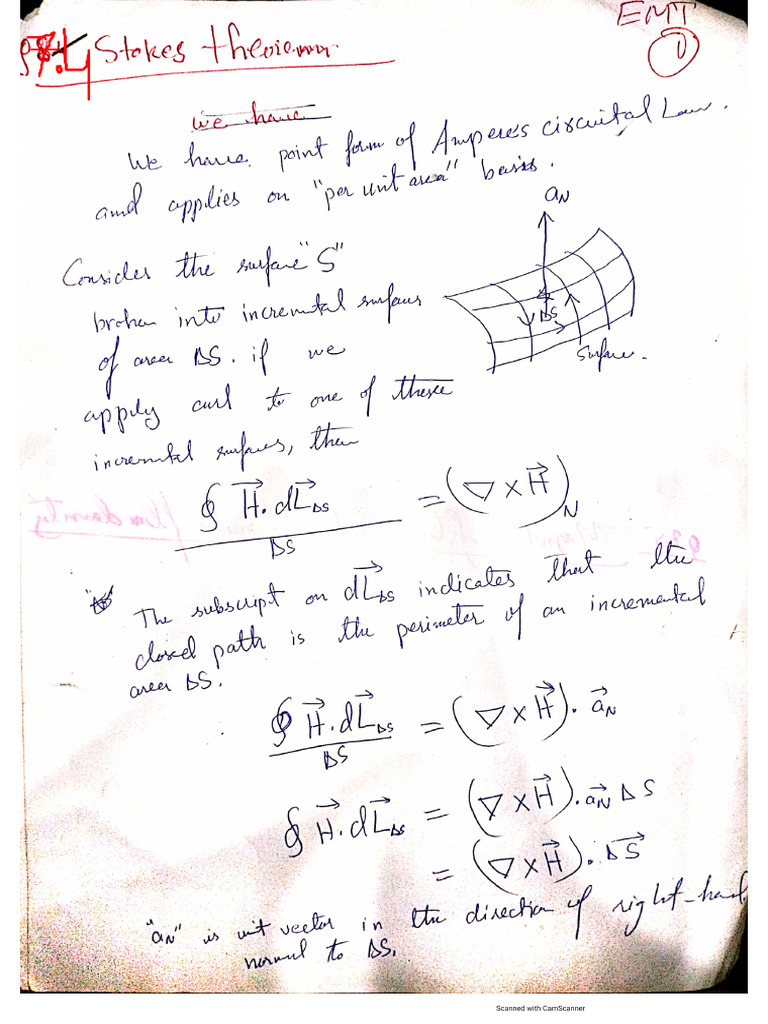 EMT
1
7.4 Stokes theorem
we have
We have point form of Ampere's circuital Law.
and applies on "per unit area" basis.
Consider the surface "S"
broken into incremental surfaces
of area ΔS. if we
apply curl to one of these
incremental surfaces, then
a_N
ΔS
Surface.
∮ H⃗.dL⃗_ΔS / ΔS = (∇ × H⃗)_N
The subscript on dL⃗_ΔS indicates that the
closed path is the perimeter of an incremental
area ΔS.
∮ H⃗.dL⃗_ΔS / ΔS = (∇ × H⃗). a⃗_N
∮ H⃗.dL⃗_ΔS = (∇ × H⃗). a⃗_N ΔS
= (∇ × H⃗). ΔS⃗
"a_N" is unit vector in the direction of right-hand
normal to ΔS.
Scanned with CamScanner